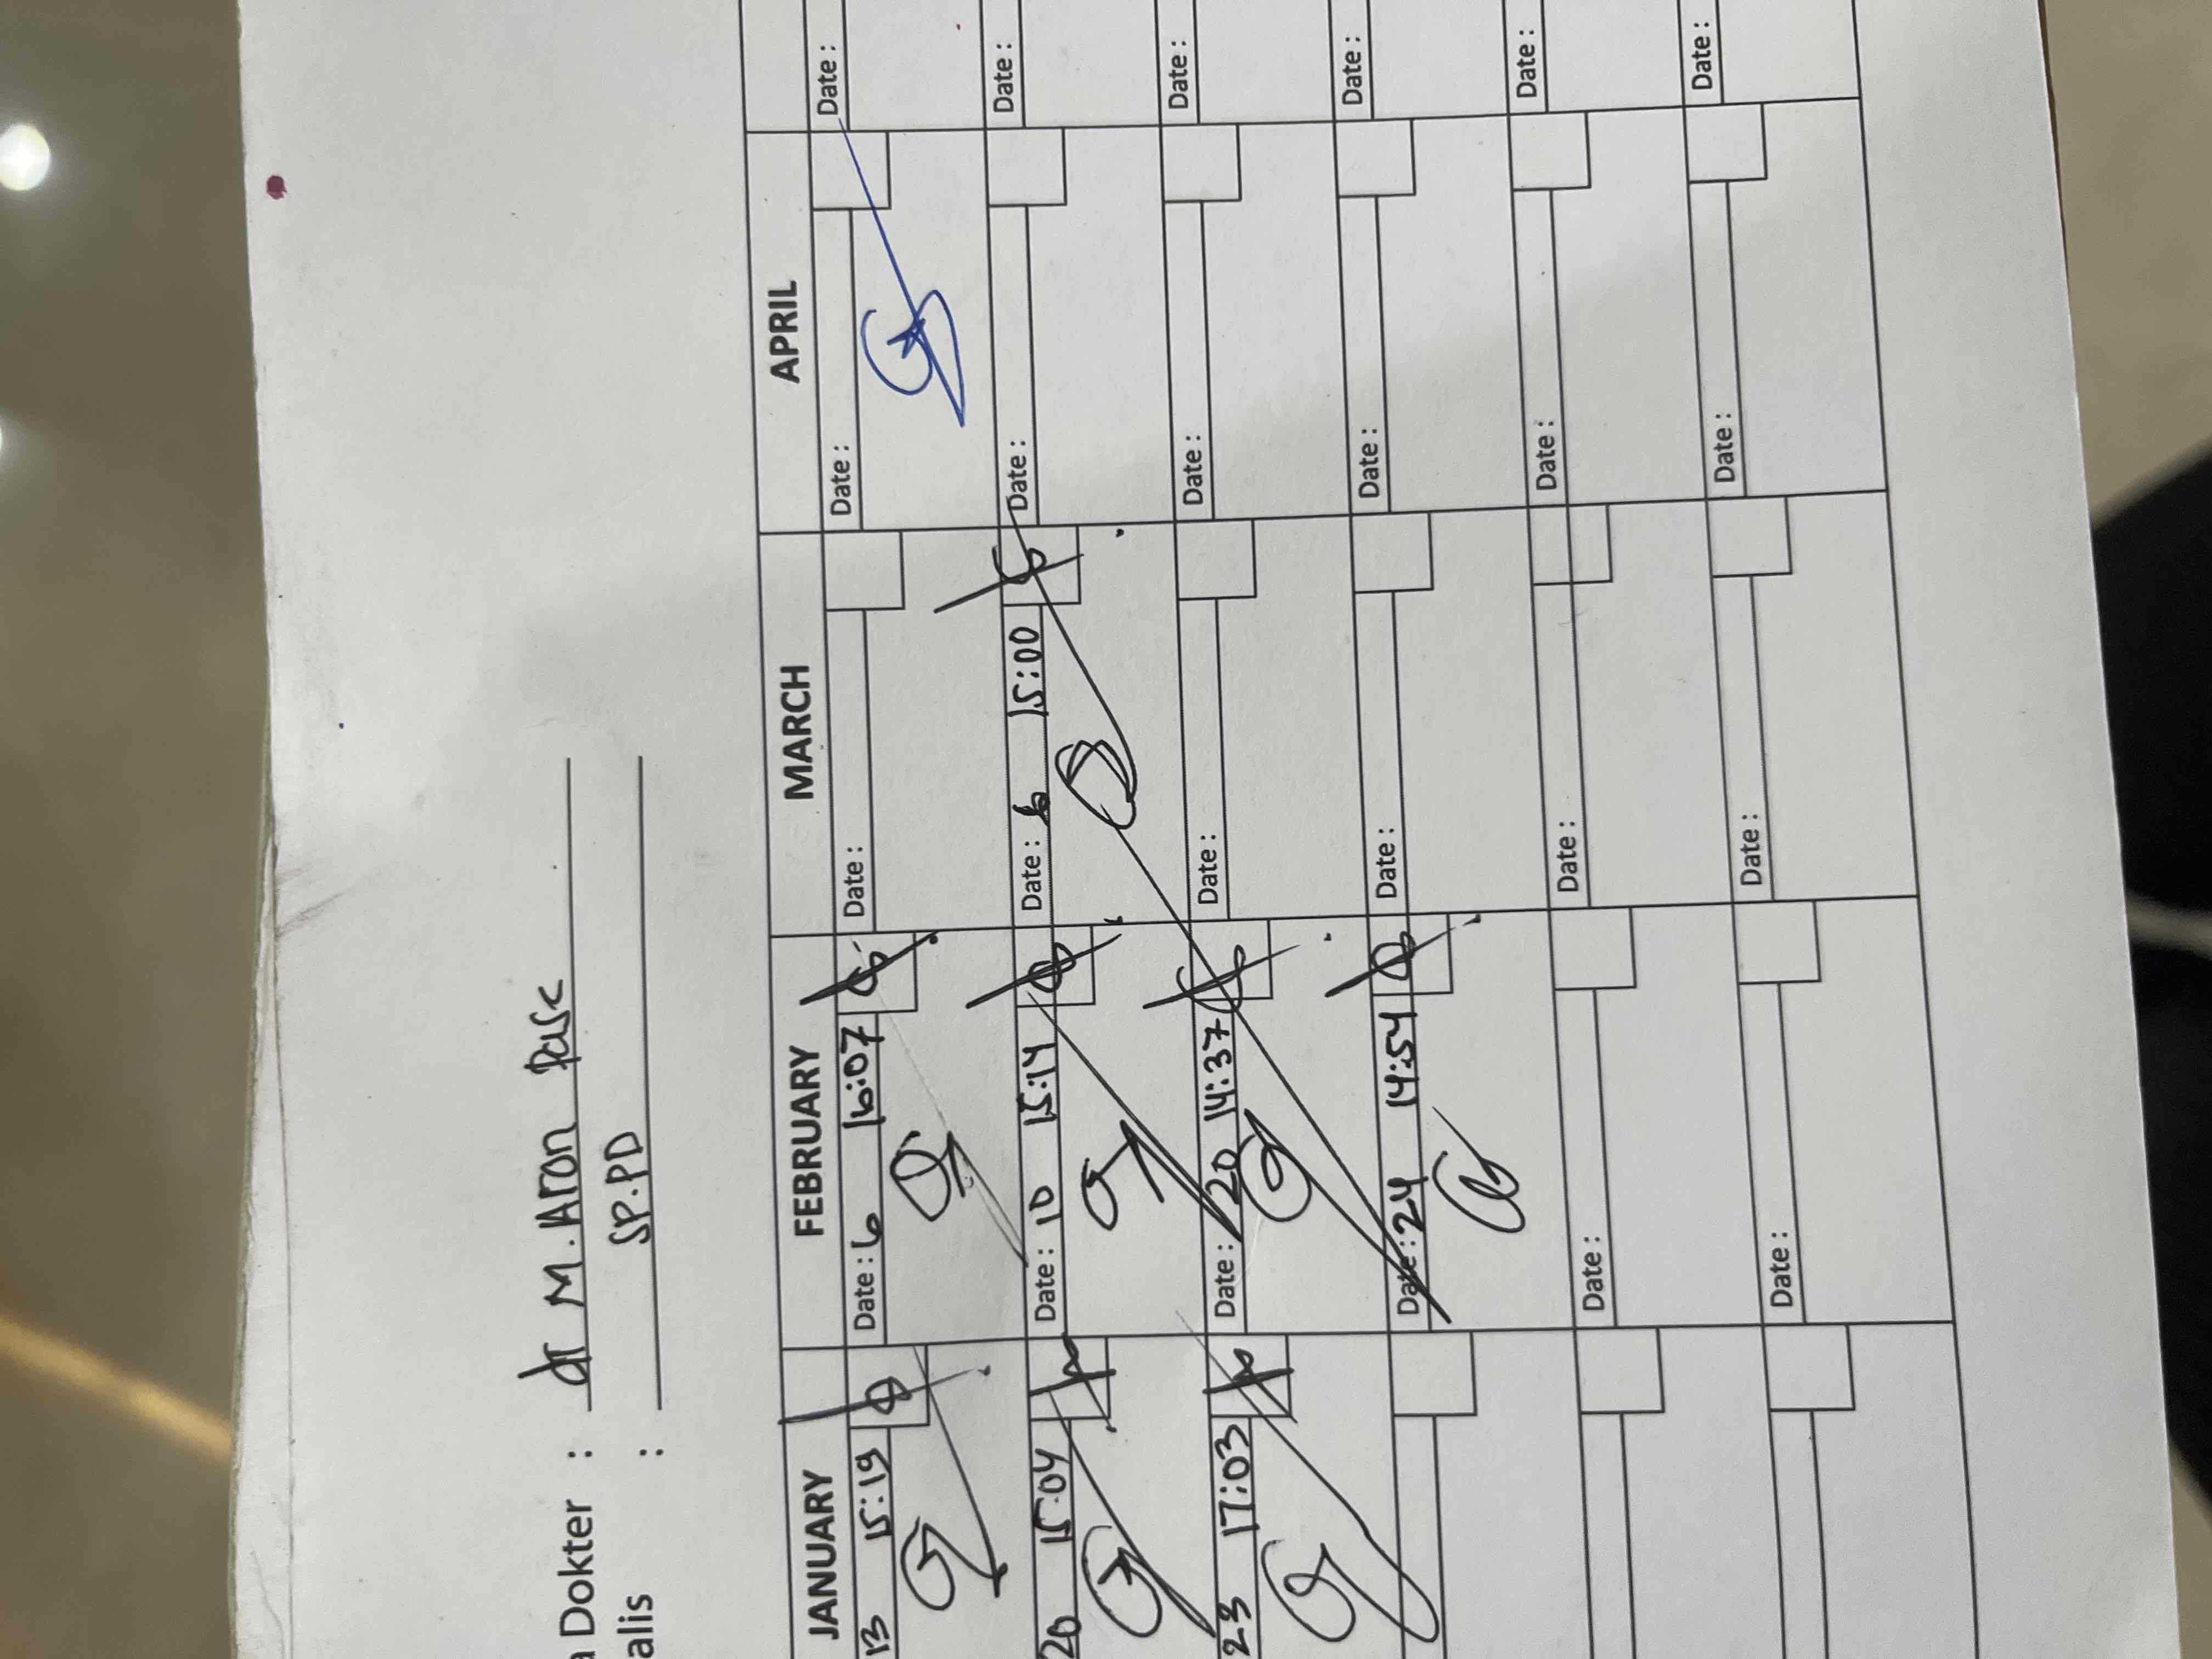 a Dokter : dr M. Aron Pasc
alis : SP.PD
JANUARY FEBRUARY MARCH APRIL
13 15:19 Date : 6 16:07 Date : Date : Date :
20 15:04 Date : 10 15:14 Date : 6 15:00 Date : Date :
23 17:03 Date : 20 14:37 Date : Date : Date :
Date : 24 14:54 Date : Date : Date :
Date : Date : Date : Date :
Date : Date : Date : Date :